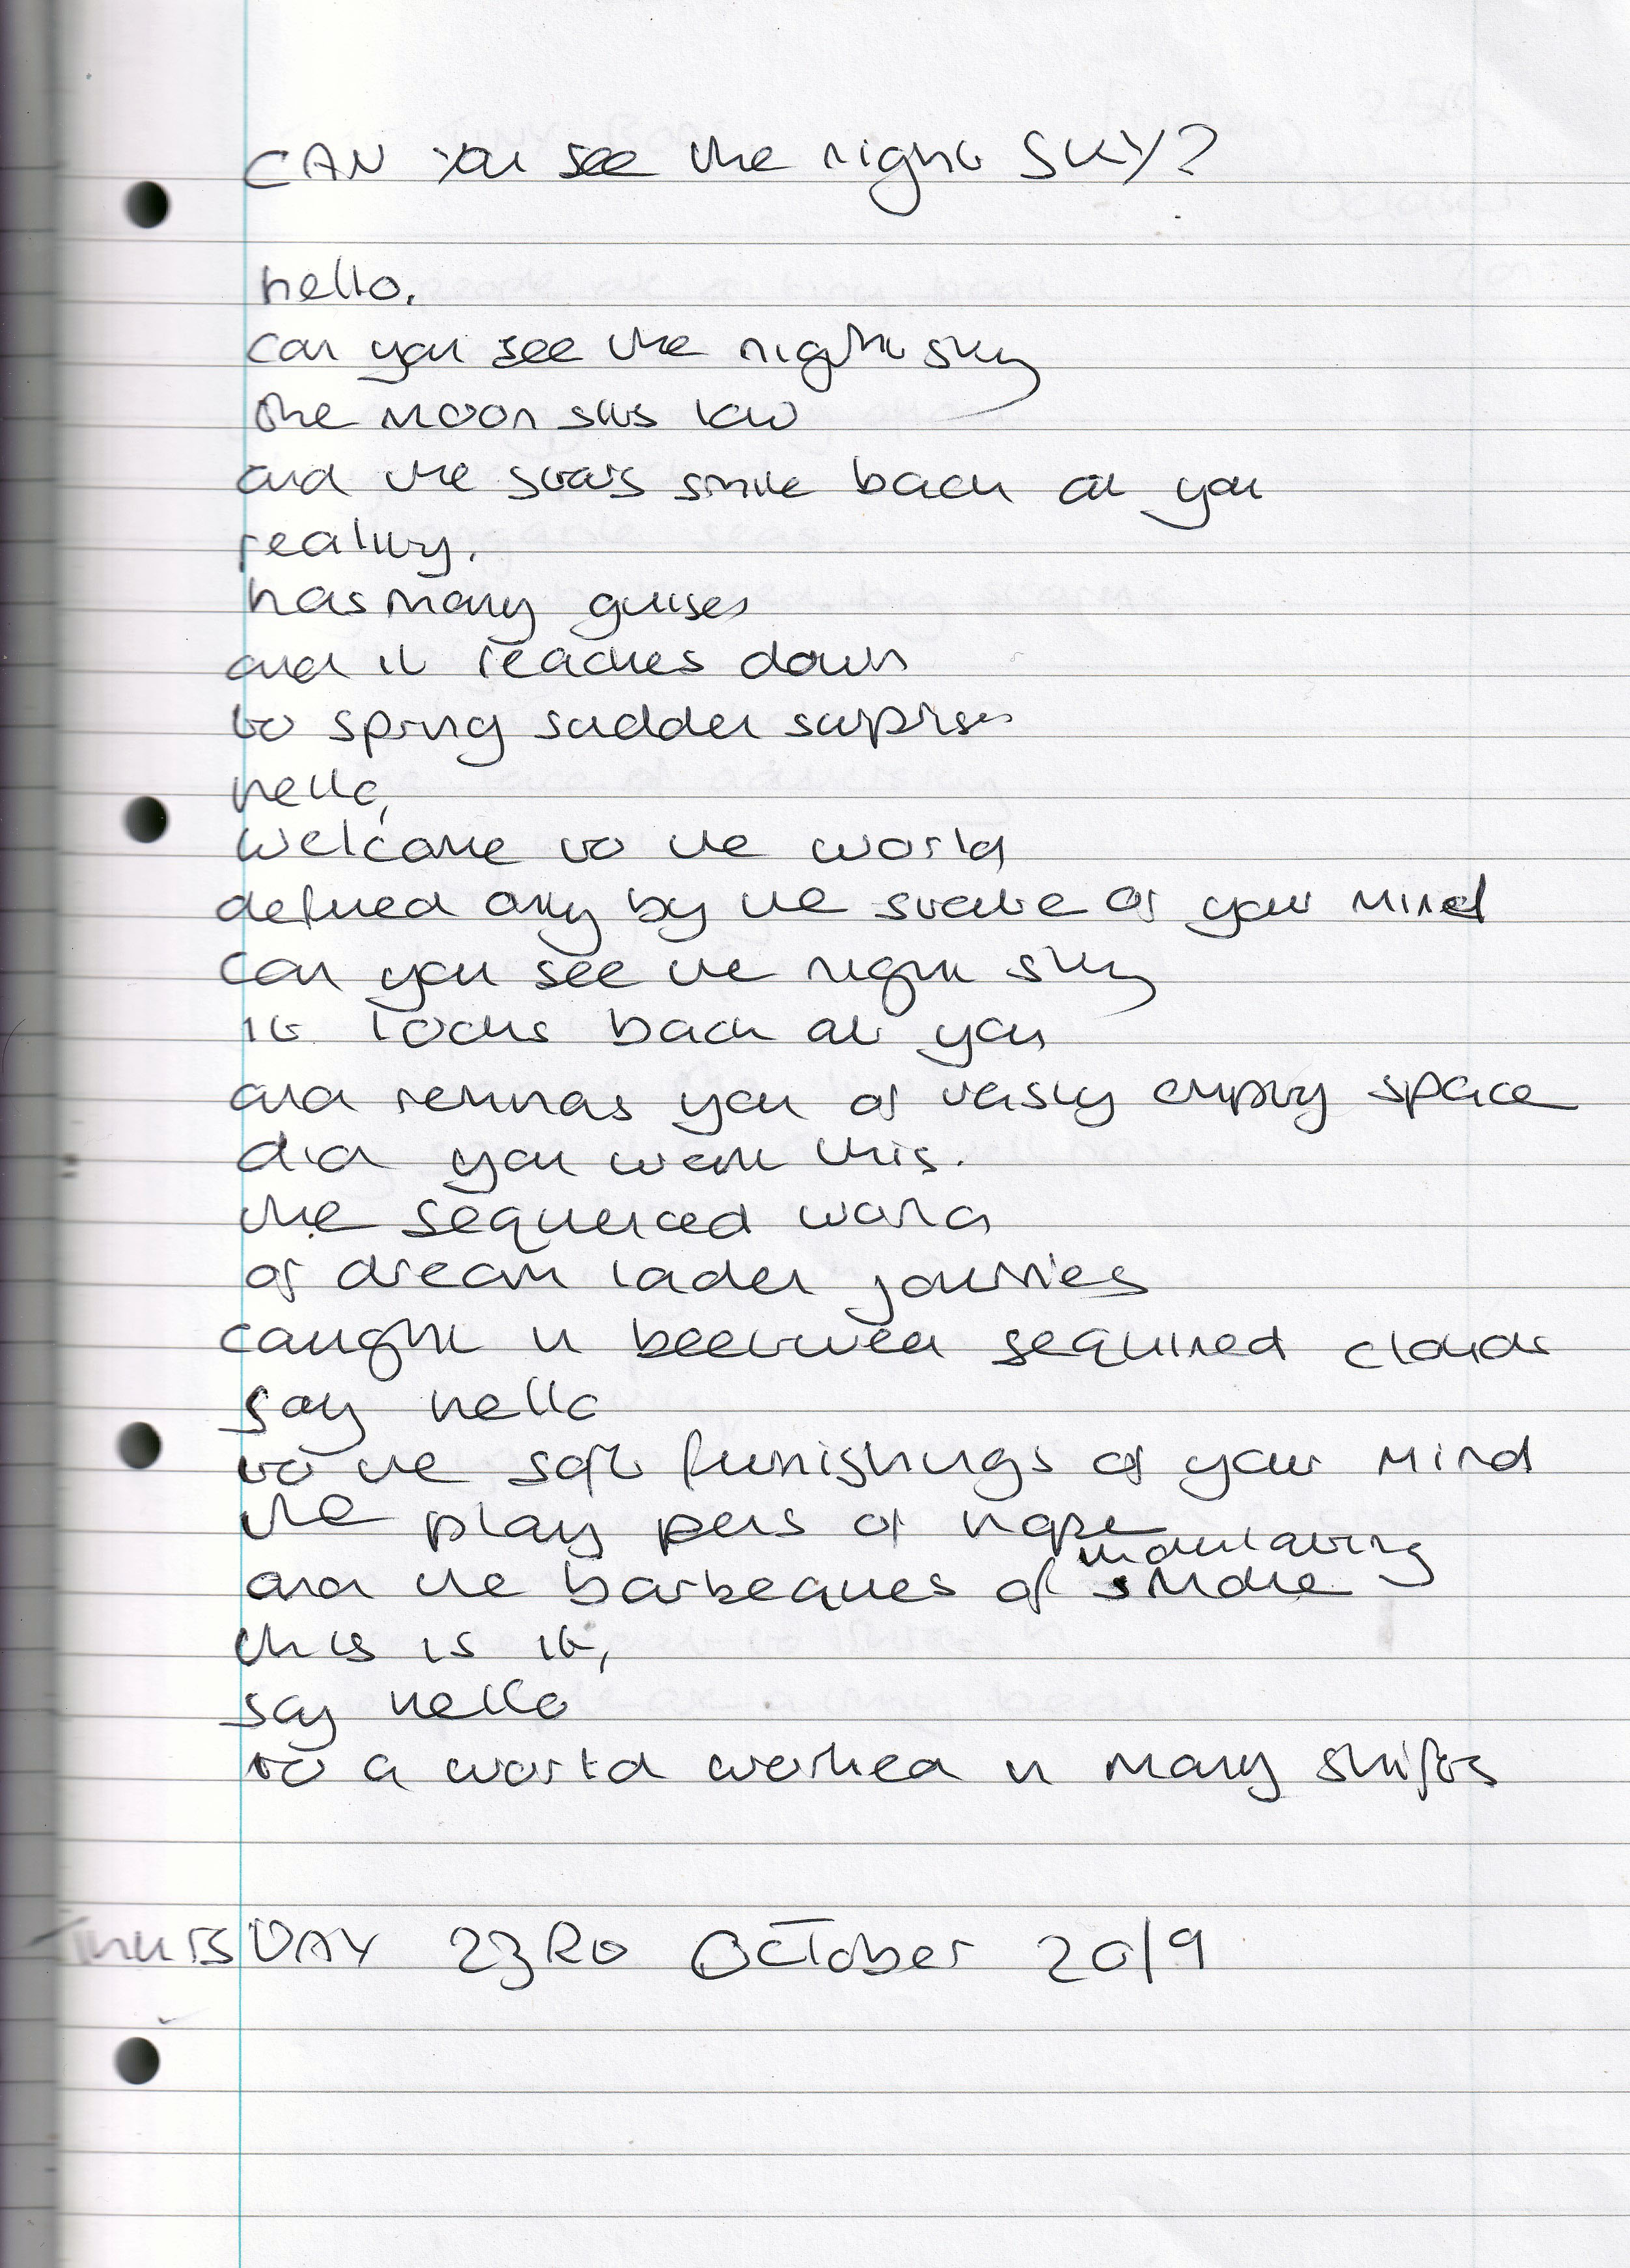 CAN you see the night SKY?
hello.
can you see the night sky
the moon sits low
and the stars smile back at you
reality.
has many guises
and it reaches down
to spring sudden surprises
hello,
welcome to the world
defined only by the state of your mind
can you see the night sky
it looks back at you
and reminds you of vastly empty space
did you want this.
the sequenced world
of dream laden journies
caught in beetween sequined clouds
say hello
to the soft furnishings of your mind
the play pens of hope
undulating
and the barbeques of smoke
this is it,
say hello
to a world worked in many shifts
THURSDAY 23RD OCTOBER 2019